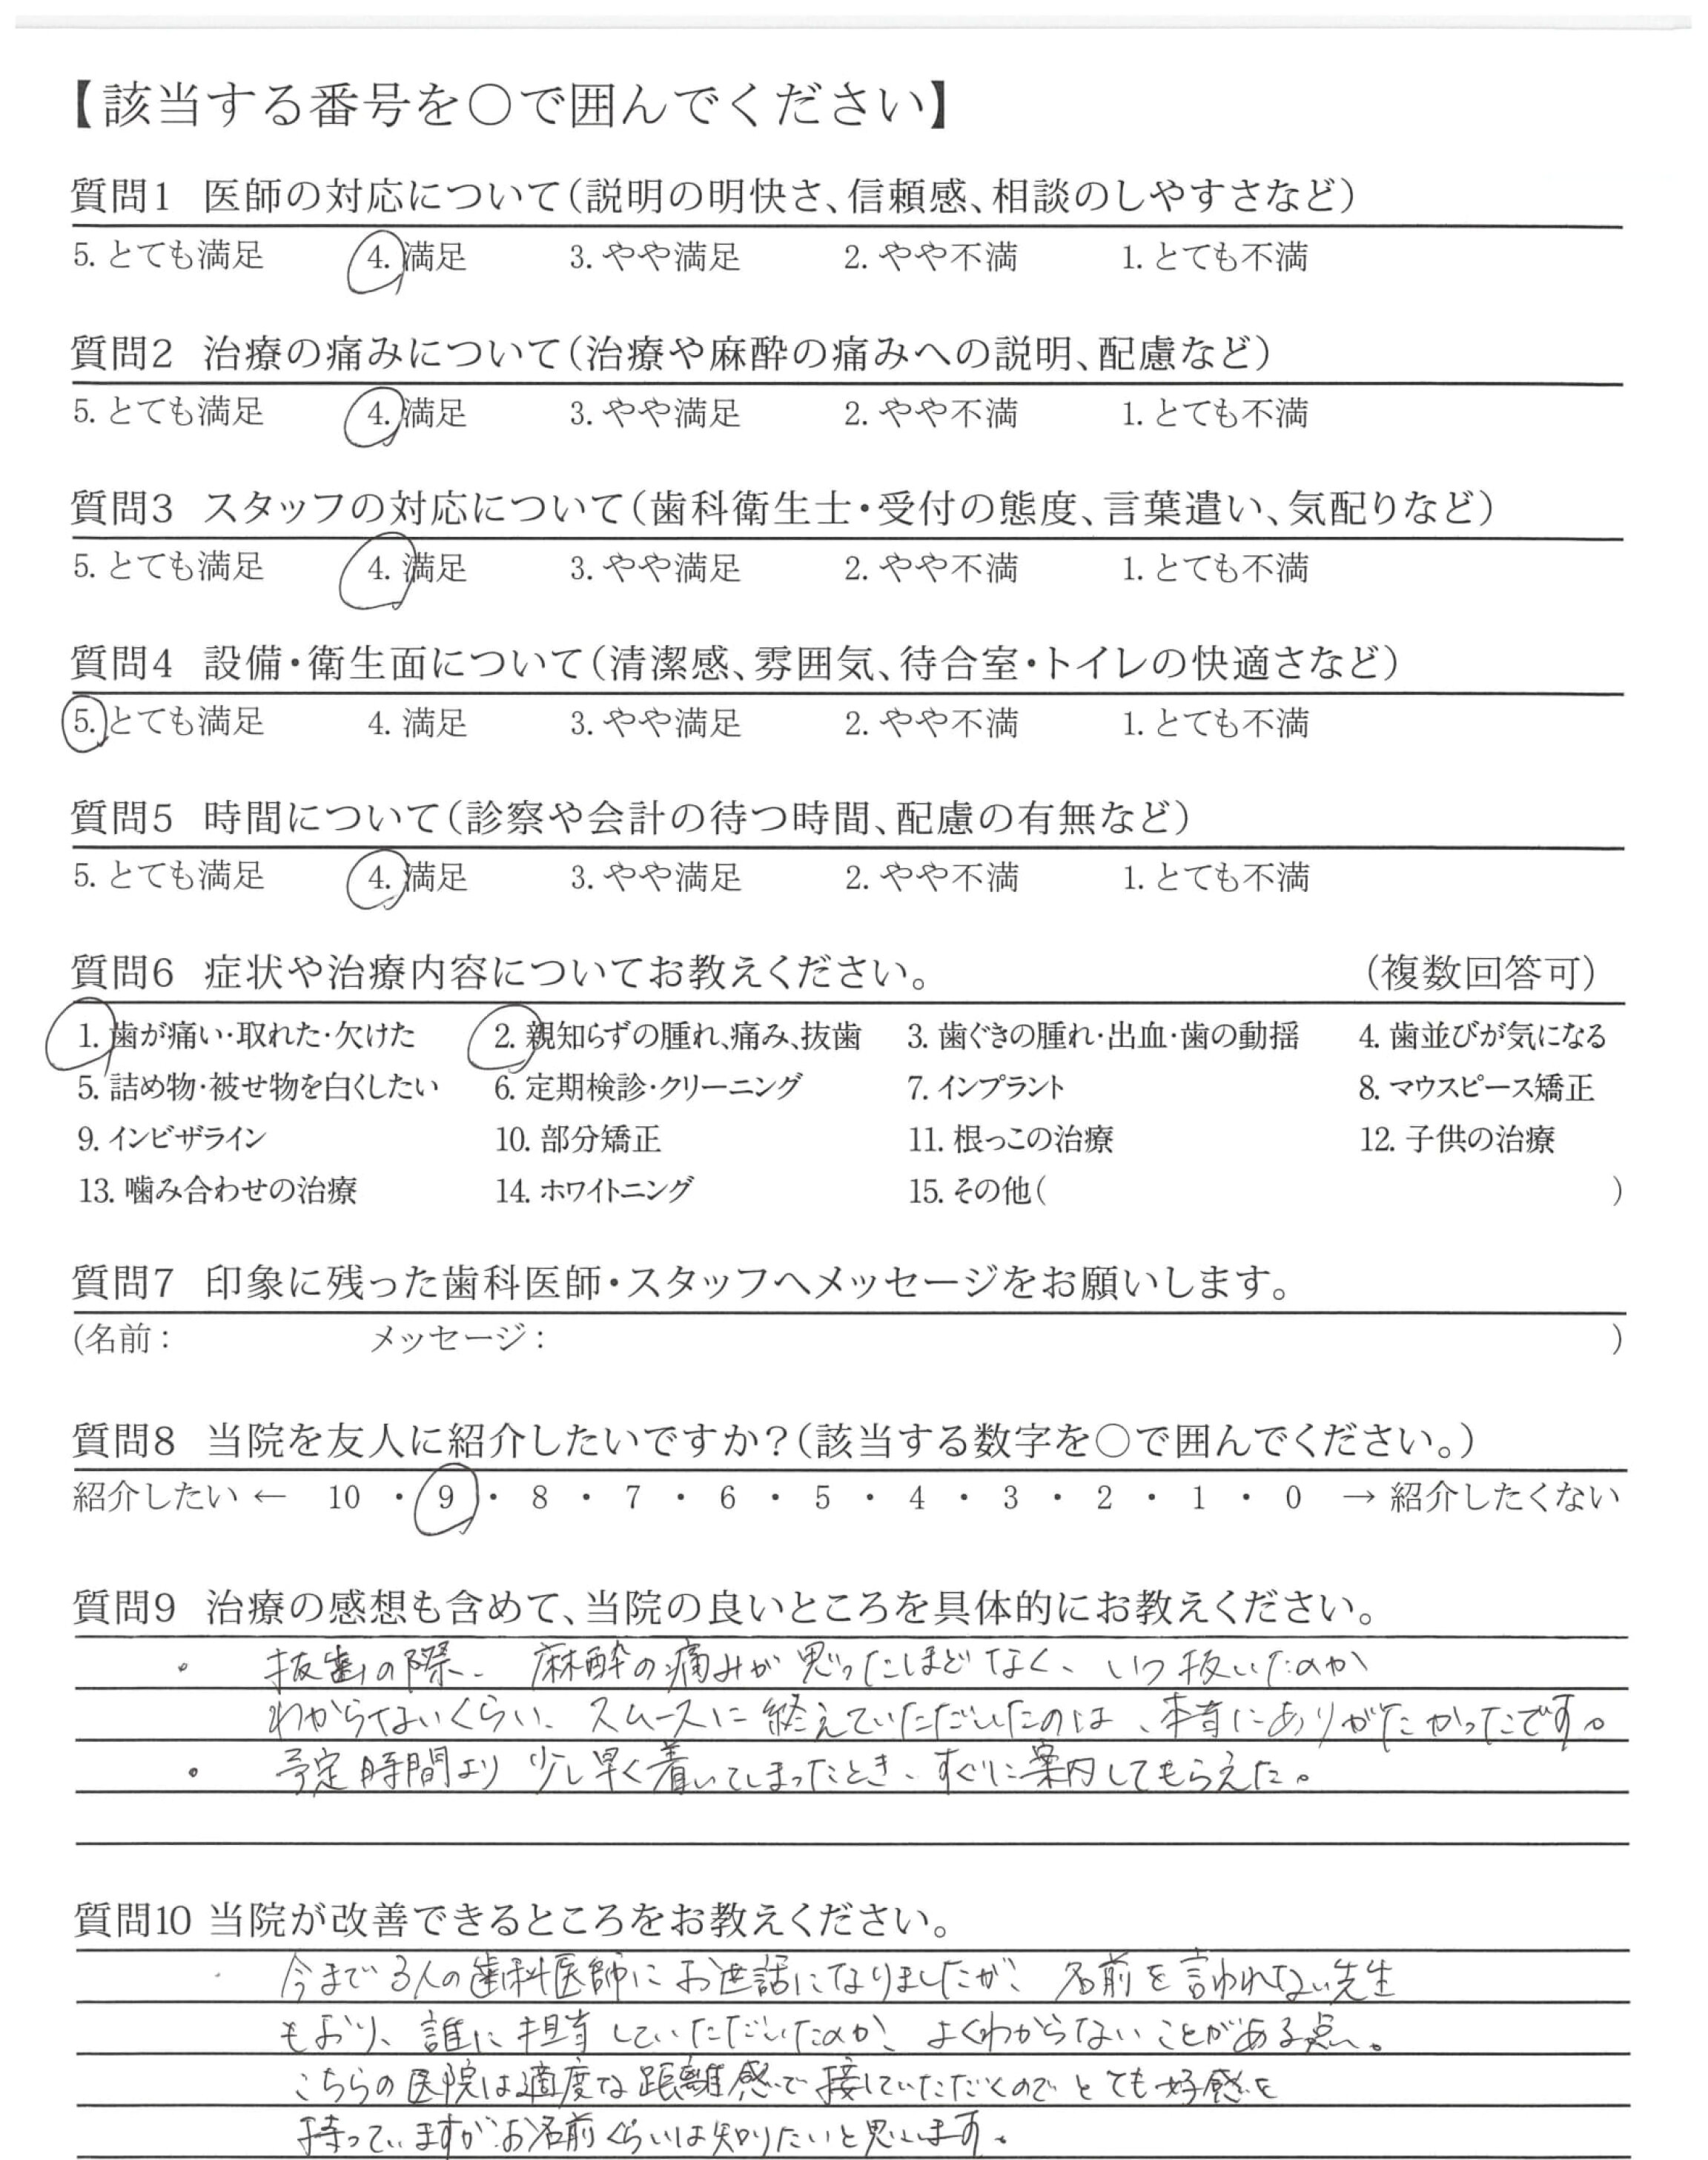 【該当する番号を○で囲んでください】
質問1 医師の対応について(説明の明快さ、信頼感、相談のしやすさなど)
5. とても満足 4. 満足 3. やや満足 2. やや不満 1. とても不満
質問2 治療の痛みについて(治療や麻酔の痛みへの説明、配慮など)
5. とても満足 4. 満足 3. やや満足 2. やや不満 1. とても不満
質問3 スタッフの対応について(歯科衛生士・受付の態度、言葉遣い、気配りなど)
5. とても満足 4. 満足 3. やや満足 2. やや不満 1. とても不満
質問4 設備・衛生面について(清潔感、雰囲気、待合室・トイレの快適さなど)
5. とても満足 4. 満足 3. やや満足 2. やや不満 1. とても不満
質問5 時間について(診察や会計の待つ時間、配慮の有無など)
5. とても満足 4. 満足 3. やや満足 2. やや不満 1. とても不満
質問6 症状や治療内容についてお教えください。 (複数回答可)
1. 歯が痛い・取れた・欠けた 2. 親知らずの腫れ、痛み、抜歯 3. 歯ぐきの腫れ・出血・歯の動揺 4. 歯並びが気になる
5. 詰め物・被せ物を白くしたい 6. 定期検診・クリーニング 7. インプラント 8. マウスピース矯正
9. インビザライン 10. 部分矯正 11. 根っこの治療 12. 子供の治療
13. 噛み合わせの治療 14. ホワイトニング 15. その他( )
質問7 印象に残った歯科医師・スタッフへメッセージをお願いします。
(名前: メッセージ: )
質問8 当院を友人に紹介したいですか?(該当する数字を○で囲んでください。)
紹介したい ← 10 ・ 9 ・ 8 ・ 7 ・ 6 ・ 5 ・ 4 ・ 3 ・ 2 ・ 1 ・ 0 → 紹介したくない
質問9 治療の感想も含めて、当院の良いところを具体的にお教えください。
・ 抜歯の際、麻酔の痛みが思ったほどなく、いつ抜いたのか
わからないくらい、スムースに終えていただいたのは、本当にありがたかったです。
・ 予定時間より少し早く着いてしまったとき、すぐに案内してもらえた。
質問10 当院が改善できるところをお教えください。
・ 今まで3人の歯科医師にお世話になりましたが、名前を言われない先生
もおり、誰に担当していただいたのか、よくわからないことがある点。
こちらの医院は適度な距離感で接していただくのでとても好感を
持っていますがお名前くらいは知りたいと思います。